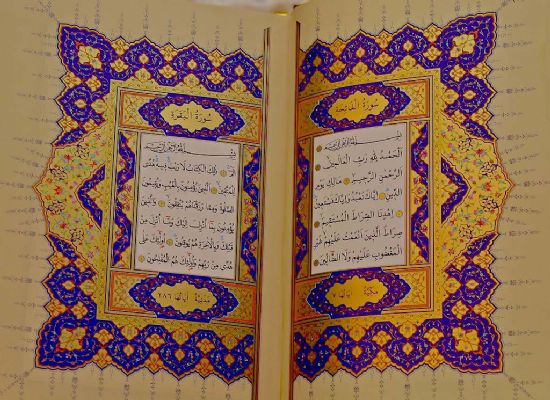 سُورَةُ الْفَاتِحَةِ
بِسْمِ اللّٰهِ الرَّحْمٰنِ الرَّحِيمِ
اَلْحَمْدُ لِلّٰهِ رَبِّ الْعَالَمِينَ
اَلرَّحْمٰنِ الرَّحِيمِ مَالِكِ يَوْمِ
الدِّينِ اِيَّاكَ نَعْبُدُ وَاِيَّاكَ نَسْتَعِينُ
اِهْدِنَا الصِّرَاطَ الْمُسْتَقِيمَ
صِرَاطَ الَّذِينَ اَنْعَمْتَ عَلَيْهِمْ غَيْرِ
الْمَغْضُوبِ عَلَيْهِمْ وَلَا الضَّالِّينَ
مَكِّيَّةٌ اٰيَاتُهَا ٧
سُورَةُ الْبَقَرَةِ
بِسْمِ اللّٰهِ الرَّحْمٰنِ الرَّحِيمِ
الٓمٓ ذٰلِكَ الْكِتَابُ لَا رَيْبَ فِيهِ هُدًى
لِلْمُتَّقِينَ اَلَّذِينَ يُؤْمِنُونَ بِالْغَيْبِ وَيُقِيمُونَ
الصَّلٰوةَ وَمِمَّا رَزَقْنَاهُمْ يُنْفِقُونَ وَالَّذِينَ
يُؤْمِنُونَ بِمَٓا اُنْزِلَ اِلَيْكَ وَمَٓا اُنْزِلَ مِنْ
قَبْلِكَ وَبِالْاٰخِرَةِ هُمْ يُوقِنُونَ اُو۬لٰٓئِكَ عَلٰى
هُدًى مِنْ رَبِّهِمْ وَاُو۬لٰٓئِكَ هُمُ الْمُفْلِحُونَ
مَدَنِيَّةٌ اٰيَاتُهَا ٢٨٦